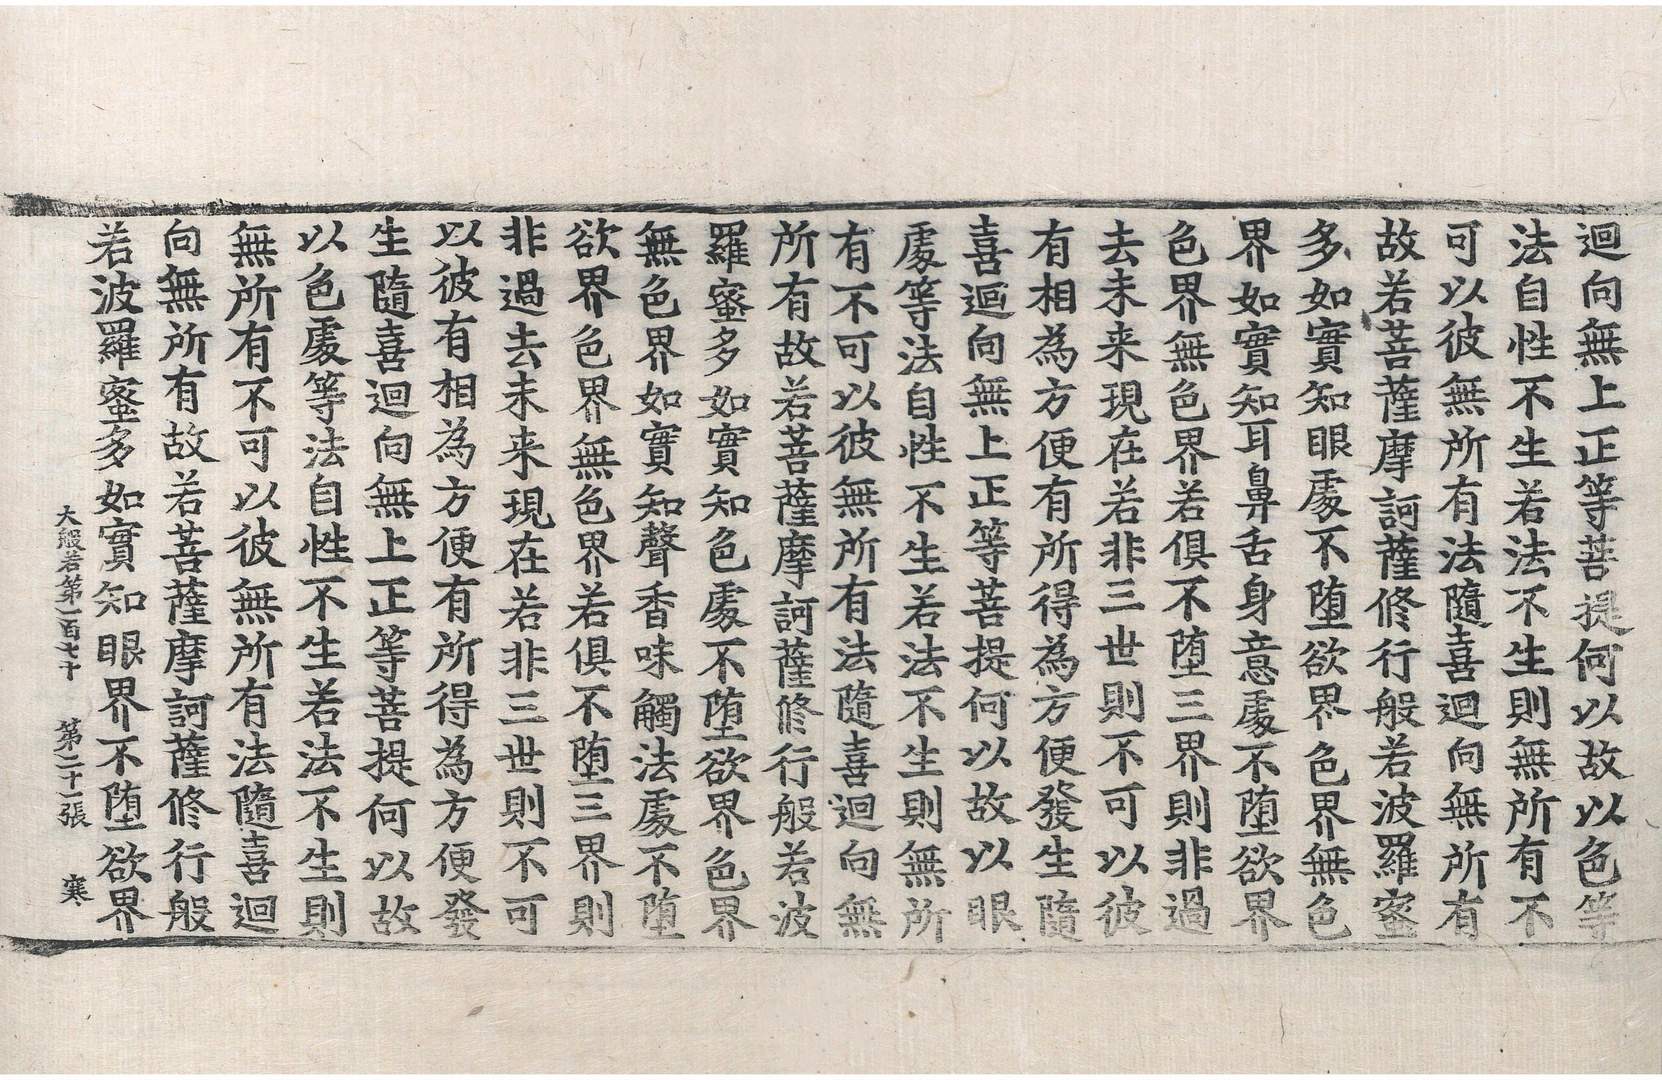 迴向無上正等菩提何以故以色等
法自性不生若法不生則無所有不
可以彼無所有法隨喜迴向無所有
故若菩薩摩訶薩修行般若波羅蜜
多如實知眼處不堕欲界色界無色
界如實知耳鼻舌身意處不堕欲界
色界無色界若俱不堕三界則非過
去未来現在若非三世則不可以彼
有相為方便有所得為方便發生隨
喜迴向無上正等菩提何以故以眼
處等法自性不生若法不生則無所
有不可以彼無所有法隨喜迴向無
所有故若菩薩摩訶薩修行般若波
羅蜜多如實知色處不堕欲界色界
無色界如實知聲香味觸法處不堕
欲界色界無色界若俱不堕三界則
非過去未来現在若非三世則不可
以彼有相為方便有所得為方便發
生隨喜迴向無上正等菩提何以故
以色處等法自性不生若法不生則
無所有不可以彼無所有法隨喜迴
向無所有故若菩薩摩訶薩修行般
若波羅蜜多如實知眼界不堕欲界
大般若第一百七十　第二十一張　寒